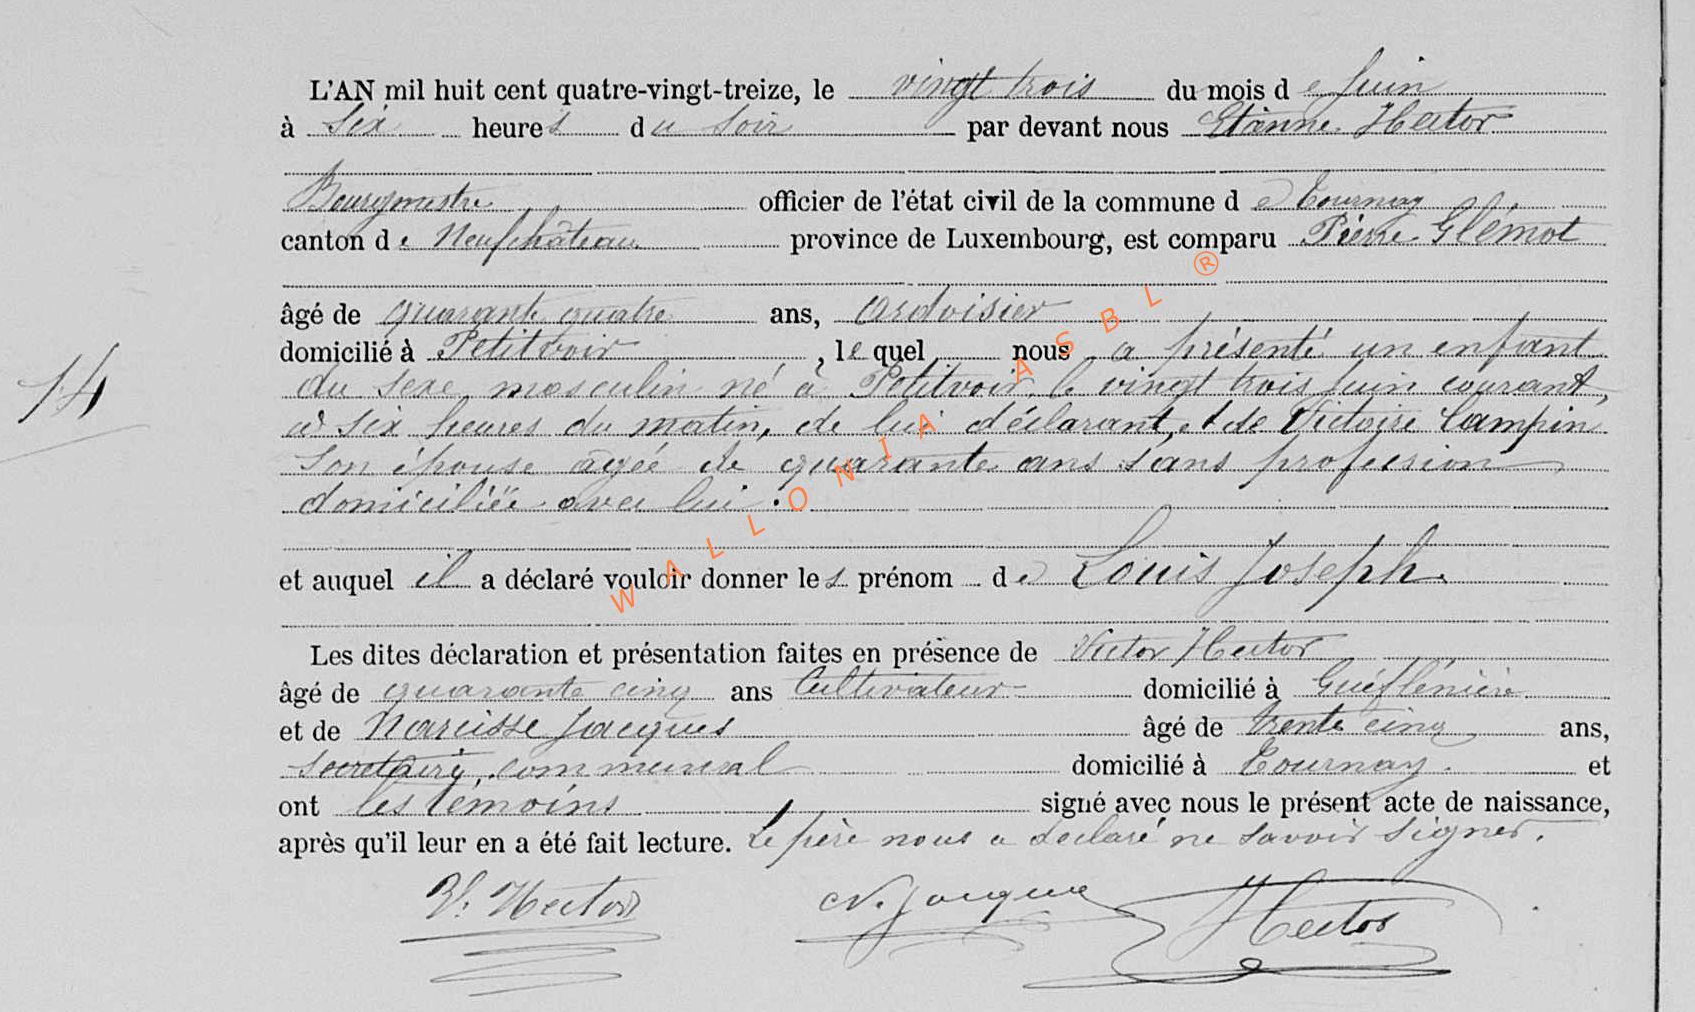 L'AN mil huit cent quatre-vingt-treize, le vingt trois du mois de Juin
à six heures du soir par devant nous Etienne Hector
Bourgmestre officier de l'état civil de la commune de Tournay
canton de Neufchâteau province de Luxembourg, est comparu Pierre Glémot
âgé de quarante quatre ans, ardoisier
domicilié à Petitvoir, le quel nous a présenté un enfant
14
du sexe masculin né à Petitvoir le vingt trois Juin courant,
à six heures du matin, de lui déclarant, et de Victoire Campin
son épouse agée de quarante ans sans profession
domiciliée avec lui.
et auquel il a déclaré vouloir donner les prénom de Louis Joseph.
Les dites déclaration et présentation faites en présence de Victor Hector
âgé de quarante cinq ans Cultivateur domicilié à
et de Narcisse Jacques âgé de trente cinq ans,
secrétaire communal domicilié à Tournay. et
ont les témoins signé avec nous le présent acte de naissance,
après qu'il leur en a été fait lecture. Le père nous a déclaré ne savoir signer.
V. Hector N. Jacques Hector
WALLONIA ASBL ®